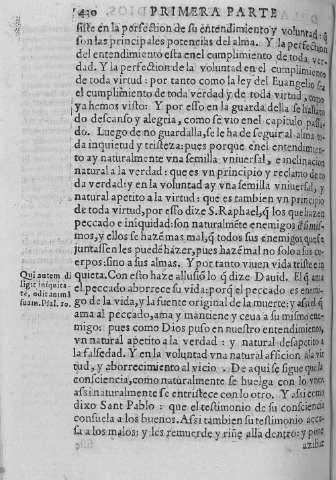 430 PRIMERA PARTE
siste en la perfection de su entendimiento y voluntad: q̃
son las principales potencias del alma. Y la perfection
del entendimiento esta en el cumplimiento de toda ver-
dad. Y la perfection de la voluntad en el cumplimiento
de toda virtud: por tanto como la ley del Euangelio sea
el cumplimiento de toda verdad y de toda virtud, como
ya hemos visto: Y por esso en la guarda della se halla to
do descanso y alegria, como se vio en el capitulo passa-
do. Luego de no guardalla, se le ha de seguir al alma to-
da inquietud y tristeza: pues porque en el entendimien-
to ay naturalmente vna semilla vniuersal, e inclinacion
natural a la verdad: que es vn principio y reclamo de to
da verdad: y en la voluntad ay vna semilla vniuersal, y
natural apetito a la virtud: que es tambien vn principio
de toda virtud, por esso dize S. Raphael, q̃ los que hazen
peccado e iniquidad: son naturalmẽte enemigos de si mis-
mos, y ellos se hazẽ mas mal, q̃ todos sus enemigos que se
juntassen les puedẽ hazer, pues hazẽ mal no solo a sus cu-
erpos: sino a sus almas. Y por tanto viuen vida triste e in
quieta. Con esto haze allusiõ lo q̃ dize Dauid. El q̃ ama
el peccado aborrece su vida: porq̃ el peccado es enemi-
go de la vida, y la fuente original de la muerte: y assi el q̃
ama al peccado, ama y mantiene y ceua a su mismo ene-
migo: pues como Dios puso en nuestro entendimiento,
vn natural apetito a la verdad: y natural desapetito a
la falsedad. Y en la voluntad vna natural afficion ala vir
tud, y aborrecimiento al vicio. De aqui se sigue que la
consciencia, como naturalmente se huelga con lo vno:
assi naturalmente se entristece con lo otro. Y assi como
dixo Sant Pablo: que el testimonio de su consciencia
consuela a los buenos. Assi tambien su testimonio accu-
sa a los malos: y les remuerde y riñe alla dentro: y pone
aziba
Qui autem di
ligit iniquita
tẽ, odit animã
suam. Psal. 10.